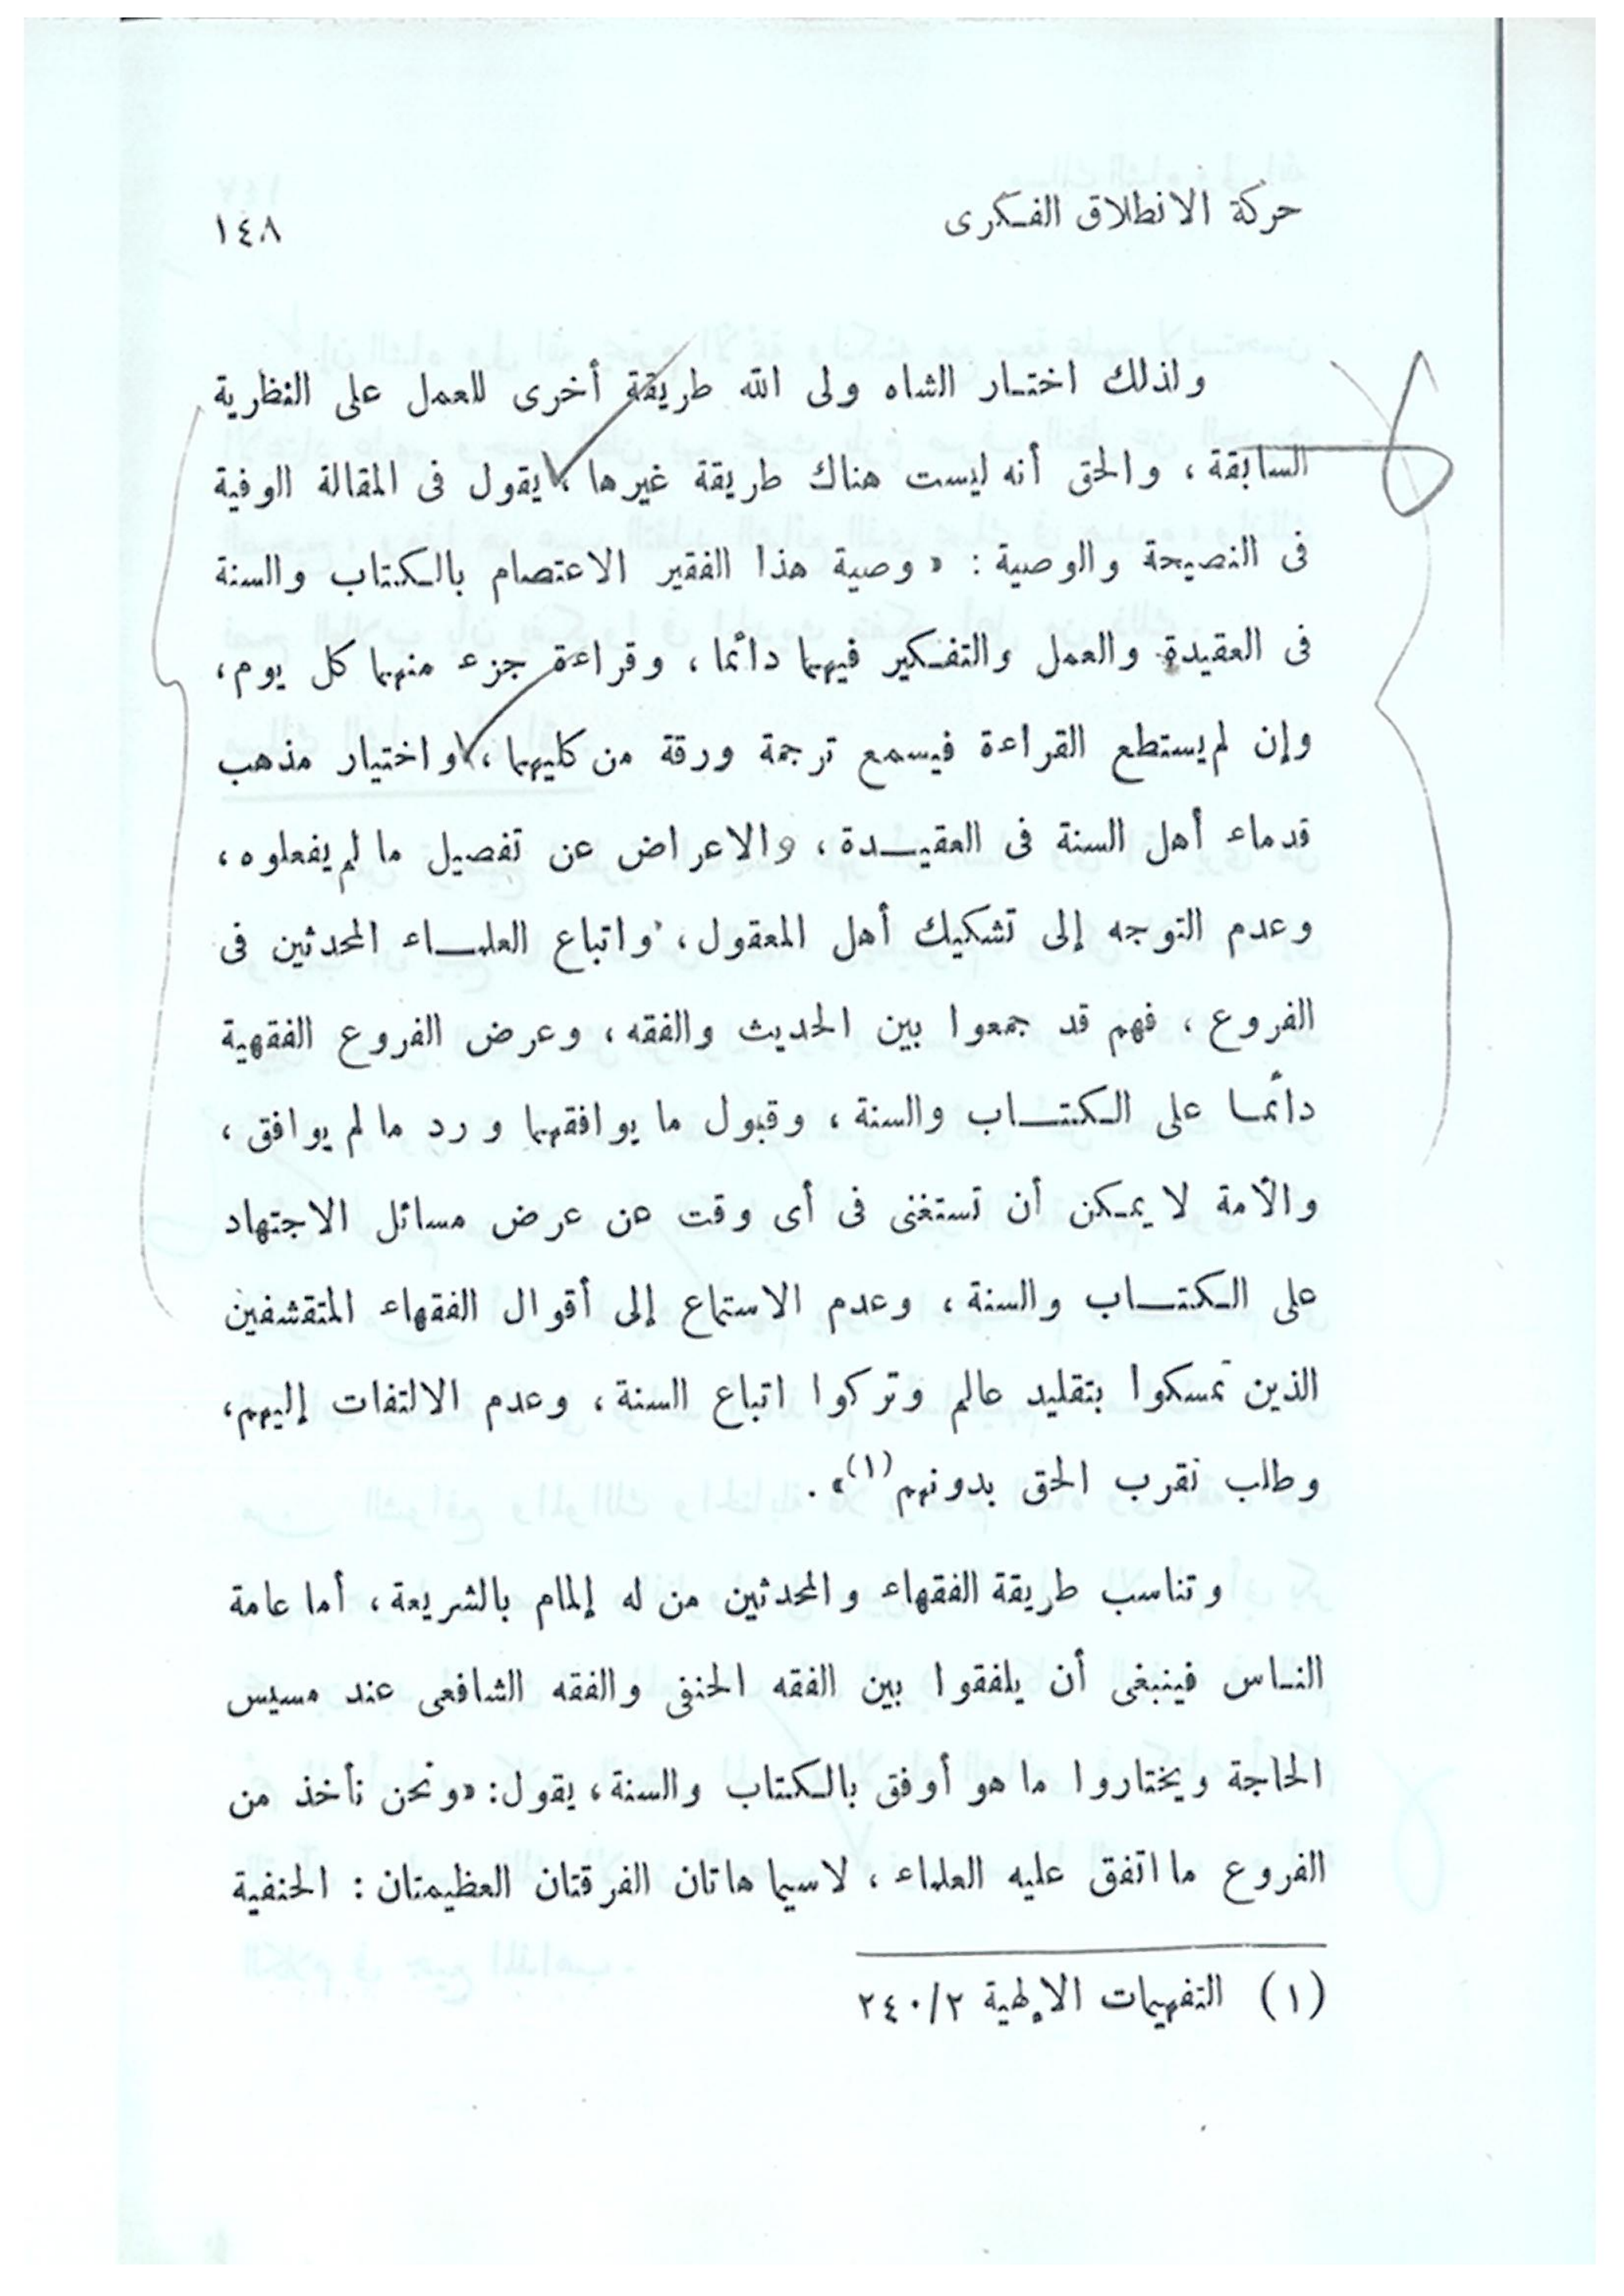 حركة الانطلاق الفكرى
١٤٨
ولذلك اختار الشاه ولى الله طريقة أخرى للعمل على النظرية
السابقة ، والحق أنه ليست هناك طريقة غيرها ، يقول فى المقالة الوفية
فى النصيحة والوصية : « وصية هذا الفقير الاعتصام بالكتاب والسنة
فى العقيدة والعمل والتفكير فيهما دائما ، وقراءة جزء منهما كل يوم ،
وإن لم يستطع القراءة فيسمع ترجمة ورقة من كليهما ، واختيار مذهب
قدماء أهل السنة فى العقيدة ، والاعراض عن تفصيل ما لم يفعلوه ،
وعدم التوجه إلى تشكيك أهل المعقول ، واتباع العلماء المحدثين فى
الفروع ، فهم قد جمعوا بين الحديث والفقه ، وعرض الفروع الفقهية
دائما على الكتاب والسنة ، وقبول ما يوافقهما ورد ما لم يوافق ،
والأمة لا يمكن أن تستغنى فى أى وقت عن عرض مسائل الاجتهاد
على الكتاب والسنة ، وعدم الاستماع إلى أقوال الفقهاء المتقشفين
الذين تمسكوا بتقليد عالم وتركوا اتباع السنة ، وعدم الالتفات إليهم ،
وطلب تقرب الحق بدونهم (١) » .
وتناسب طريقة الفقهاء والمحدثين من له إلمام بالشريعة ، أما عامة
الناس فينبغى أن يلفقوا بين الفقه الحنفى والفقه الشافعى عند مسيس
الحاجة ويختاروا ما هو أوفق بالكتاب والسنة ، يقول : « ونحن نأخذ من
الفروع ما اتفق عليه العلماء ، لاسيما هاتان الفرقتان العظيمتان : الحنفية
(١) التفهيمات الإلهية ٢٤٠/٢